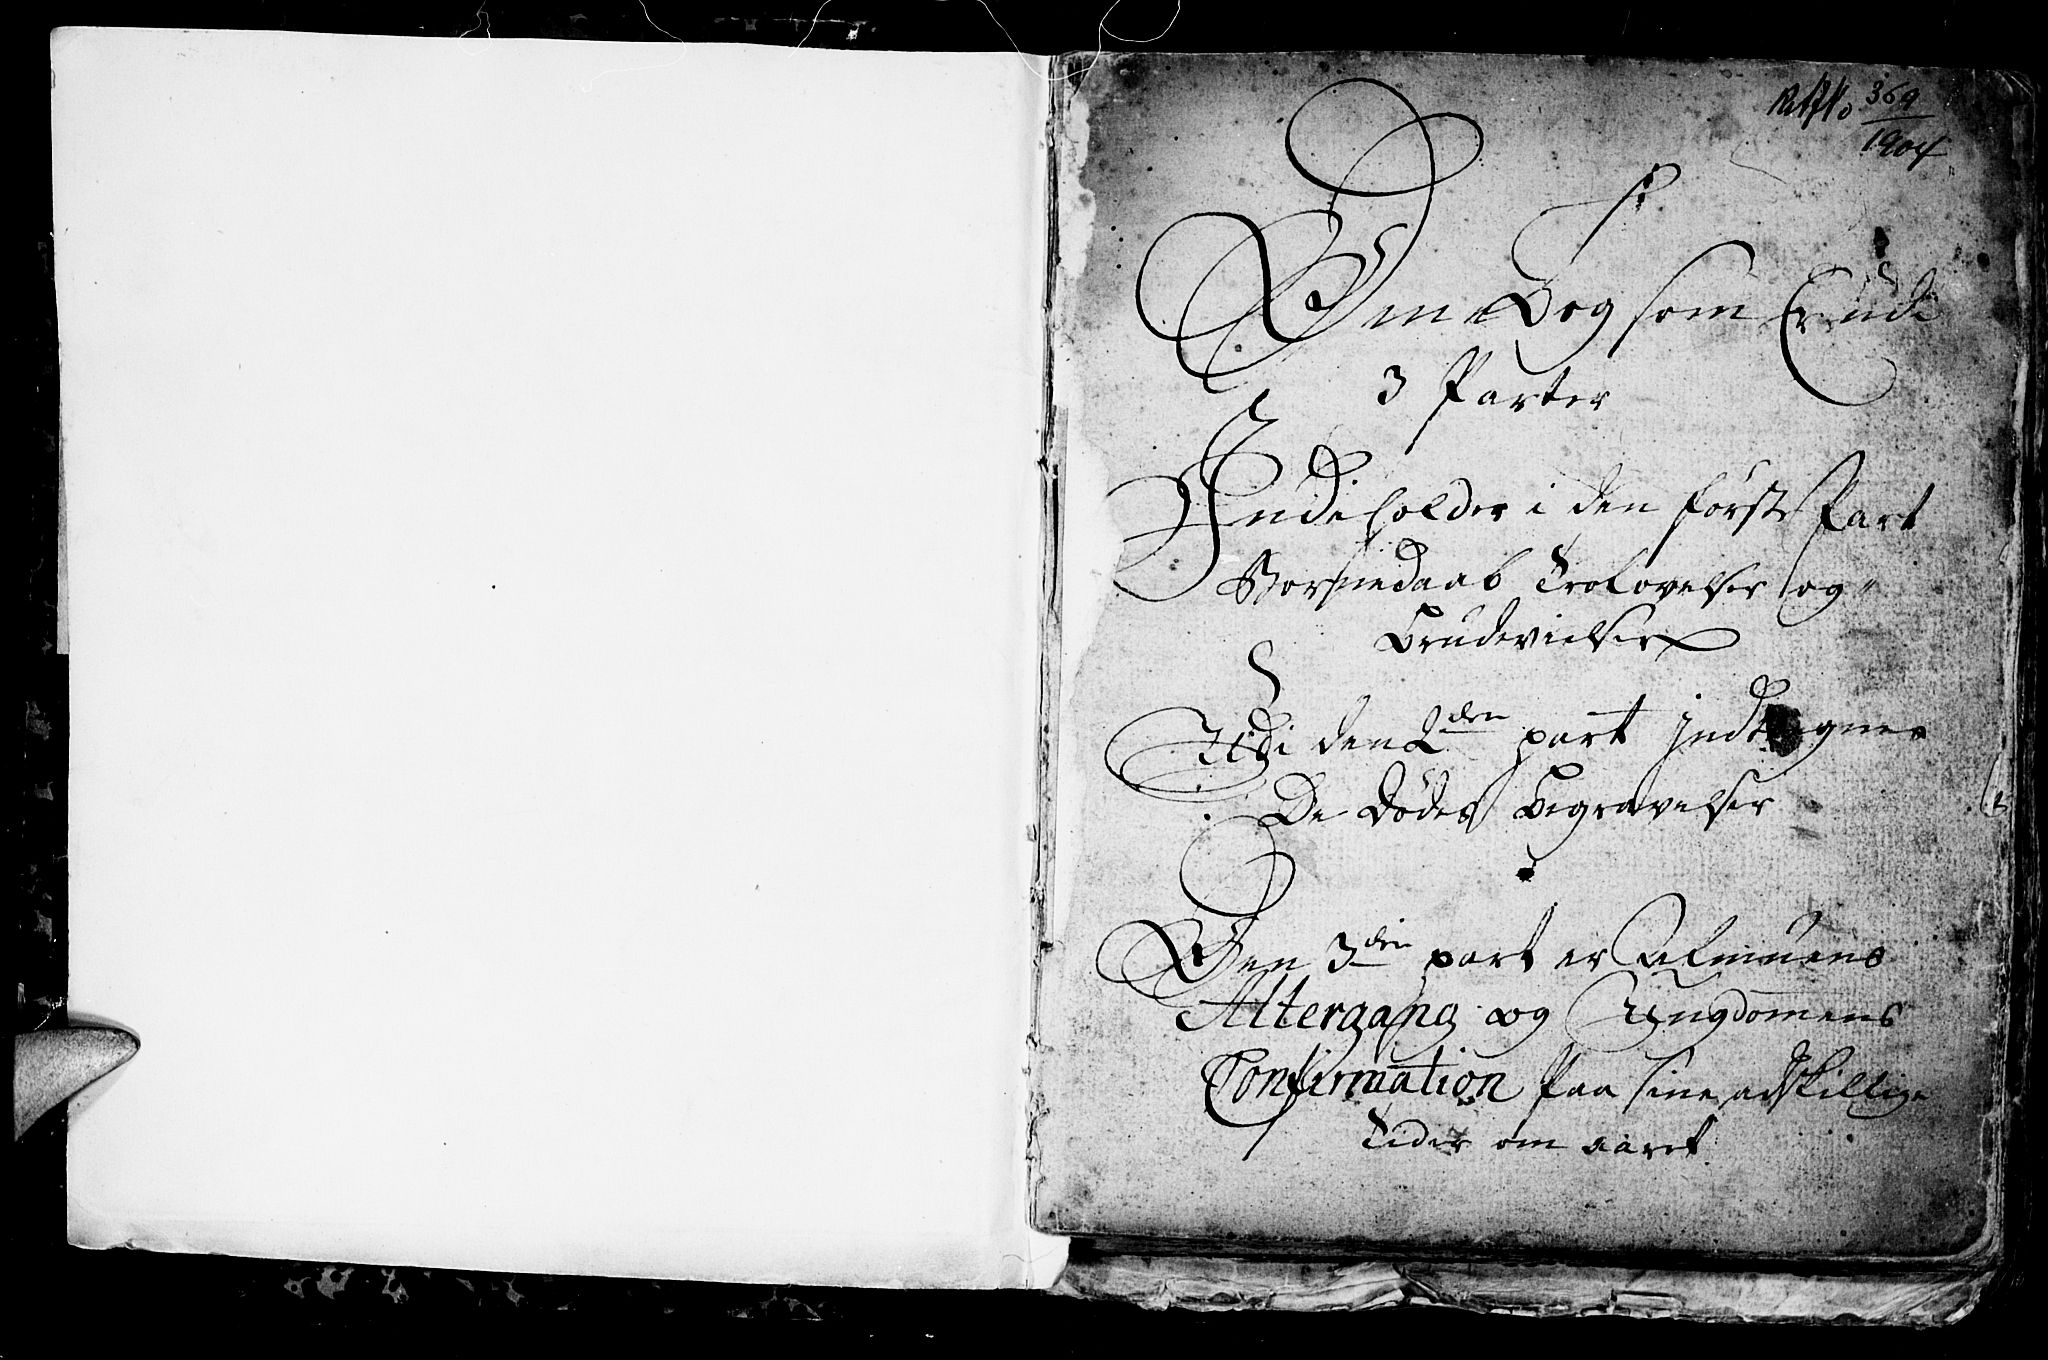 369
1904
Den Bog som Er udi
3 Parter
Indeholder i den første Part
Barnedaab Trolovelser og
Brudevielser
Udi den 2den part Indtegnes
De Dødes Begravelser
Den 3den part er Almuens
Altergang og Ungdomens
Confirmation paa sine adskillige
Tider om aaret